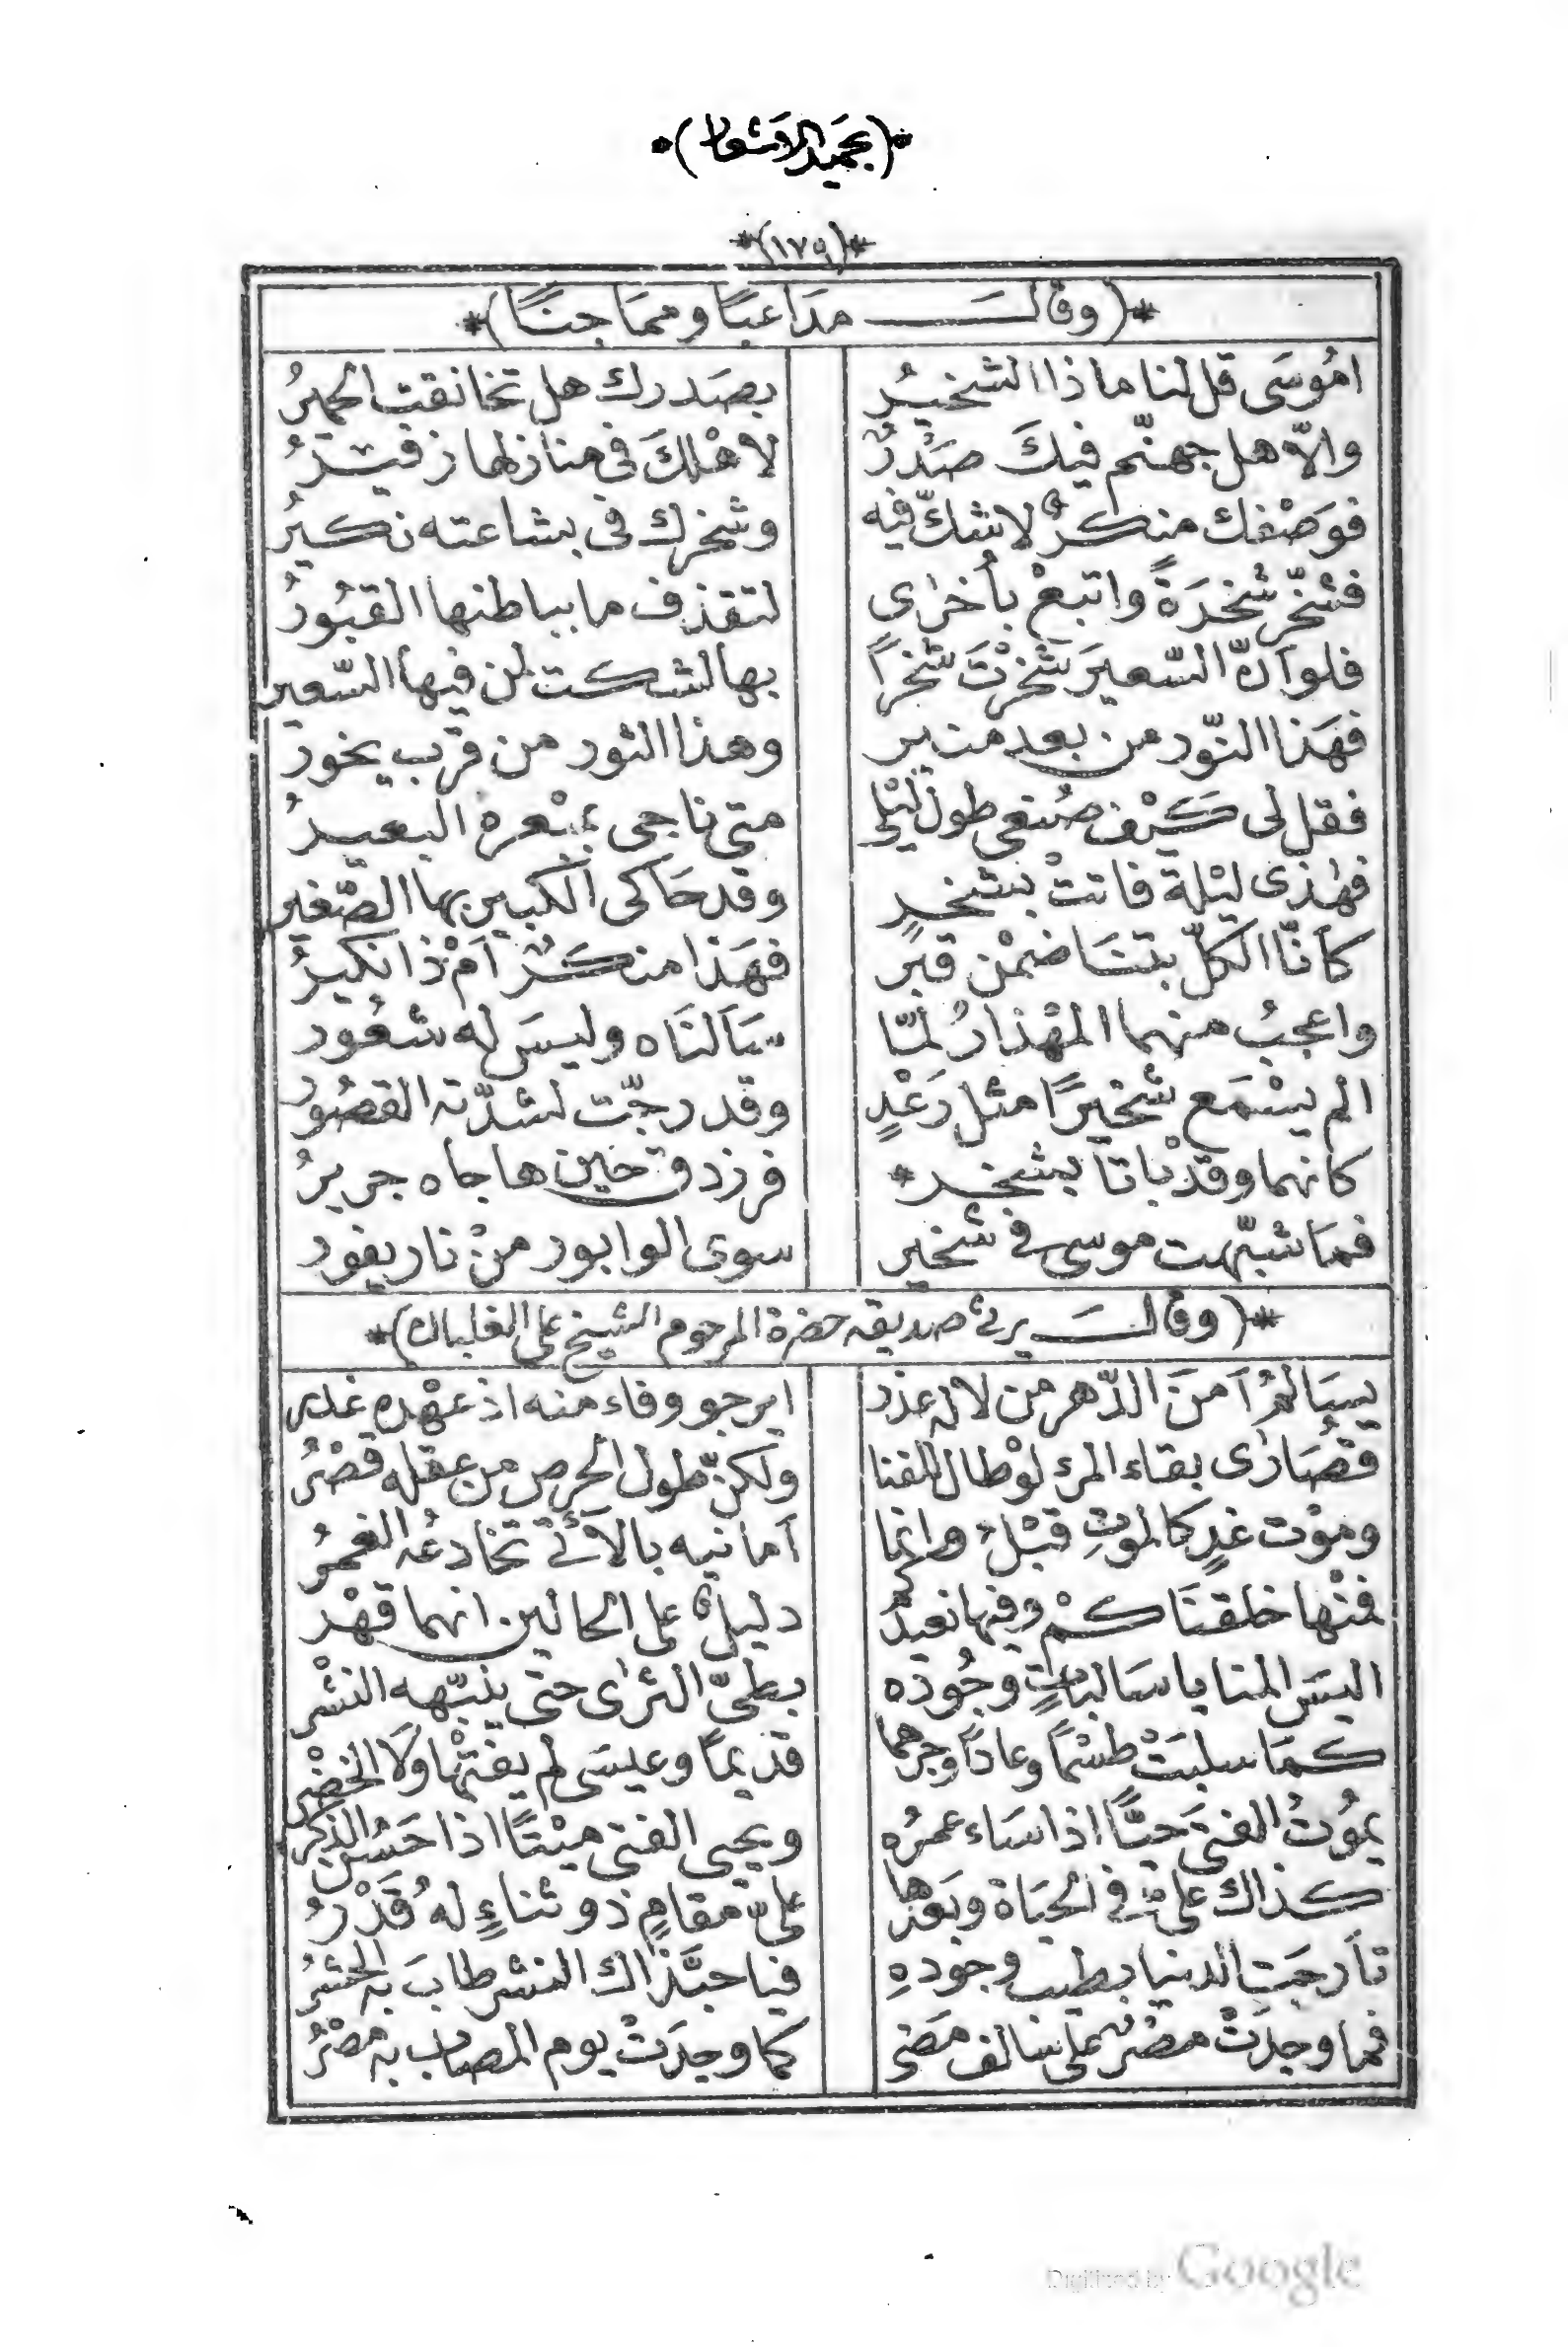 *(١٧٥)*
*(وقال مدَاعبًا ومماجنًا)*
امُوسَى قل لنا ماذا الشخيرُ بصَدرك هل تخانقت الحميرُ
والّا هل جهنّم فيكَ صَدْرٌ لاهْلكَ في منازلها زفيرُ
فوَصْفك منكرٌ لا شكّ فيه وشخرك في بشاعته نكيرُ
فشخّر شخرَةً واتبعْ باُخرٰى لتقذف ما بباطنها القبُورُ
فلو اَنّ السّعيرَ شَخَرْتَ شخراً بها لشكت لمن فيها السّعير
فهَذا النّور من بعد منير وهذا الثور من قرب يخور
فقل لى كيْف صُنعى طول ليْلى متى ناجى بنْعره البعيرُ
فهٰذى ليْلة فاتتْ بشخرٍ وقد حَاكى الكبير بها الصّغير
كأنّا الكلّ بتنَا ضمْن قبر فهَذا منكرٌ اَمْ ذا نكيرُ
واعجبُ منهما المهْذارُ لمّا سَاَلنَاه وليسَ له شعُور
الم يسْمَع شخيرًا مثل رَعْدٍ وقد رجّت لشدّته القصُور
كانهما وقدْ باتا بشخر * فرزدق حين هاجاه جريرُ
فمَا شبّهت موسى فى شخير سوى الوابور منْ نار يفور
*(وقال يرثى صديقه حضرة المرحوم الشيخ على الغلبان)*
يسَالمُ اَمنَ الدّهر من لا له عذر ايرجو وفاء منه اذ عهْده غدر
قصَارٰى بقاء المرء لوْ طال للفنا ولكنّ طول الحرص من عقله قصْرُ
وموْت غدٍ كالموْتِ قبْلُ وانما اَمانيه بالآتى تخادعُه الغمرُ
فمنْها خلقنَاكمْ وفيها نعيدُكم دليلٌ على الحالين انهما قهْر
اليسَ المنايا سَالبَاتٍ وجُوده بطىّ الثرٰى حتى ينبّهه النشْر
كمَا سلبَتْ طسْمًا وعاداً وجرهما قديمًا وعيسَى لم يفتْها ولَا الخضْر
يموُتُ الفتى حيًّا اذا سَاء عمرُه ويحيى الفتى ميْتًا اذا حَسُن الذكر
كذاك علىّ فى الحيَاة وبَعْدها علىّ مقامٍ ذو ثناءٍ له قَدْرُ
تأرجَتِ الدنيا بطيب وجودهِ فيا حبّذاك النشر طابَ به الحشرُ
فما وجدَتْ مصْرٌ على سالف مَضى كما وجدَتْ يوم المصاب به مصْرُ
Digitized by Google